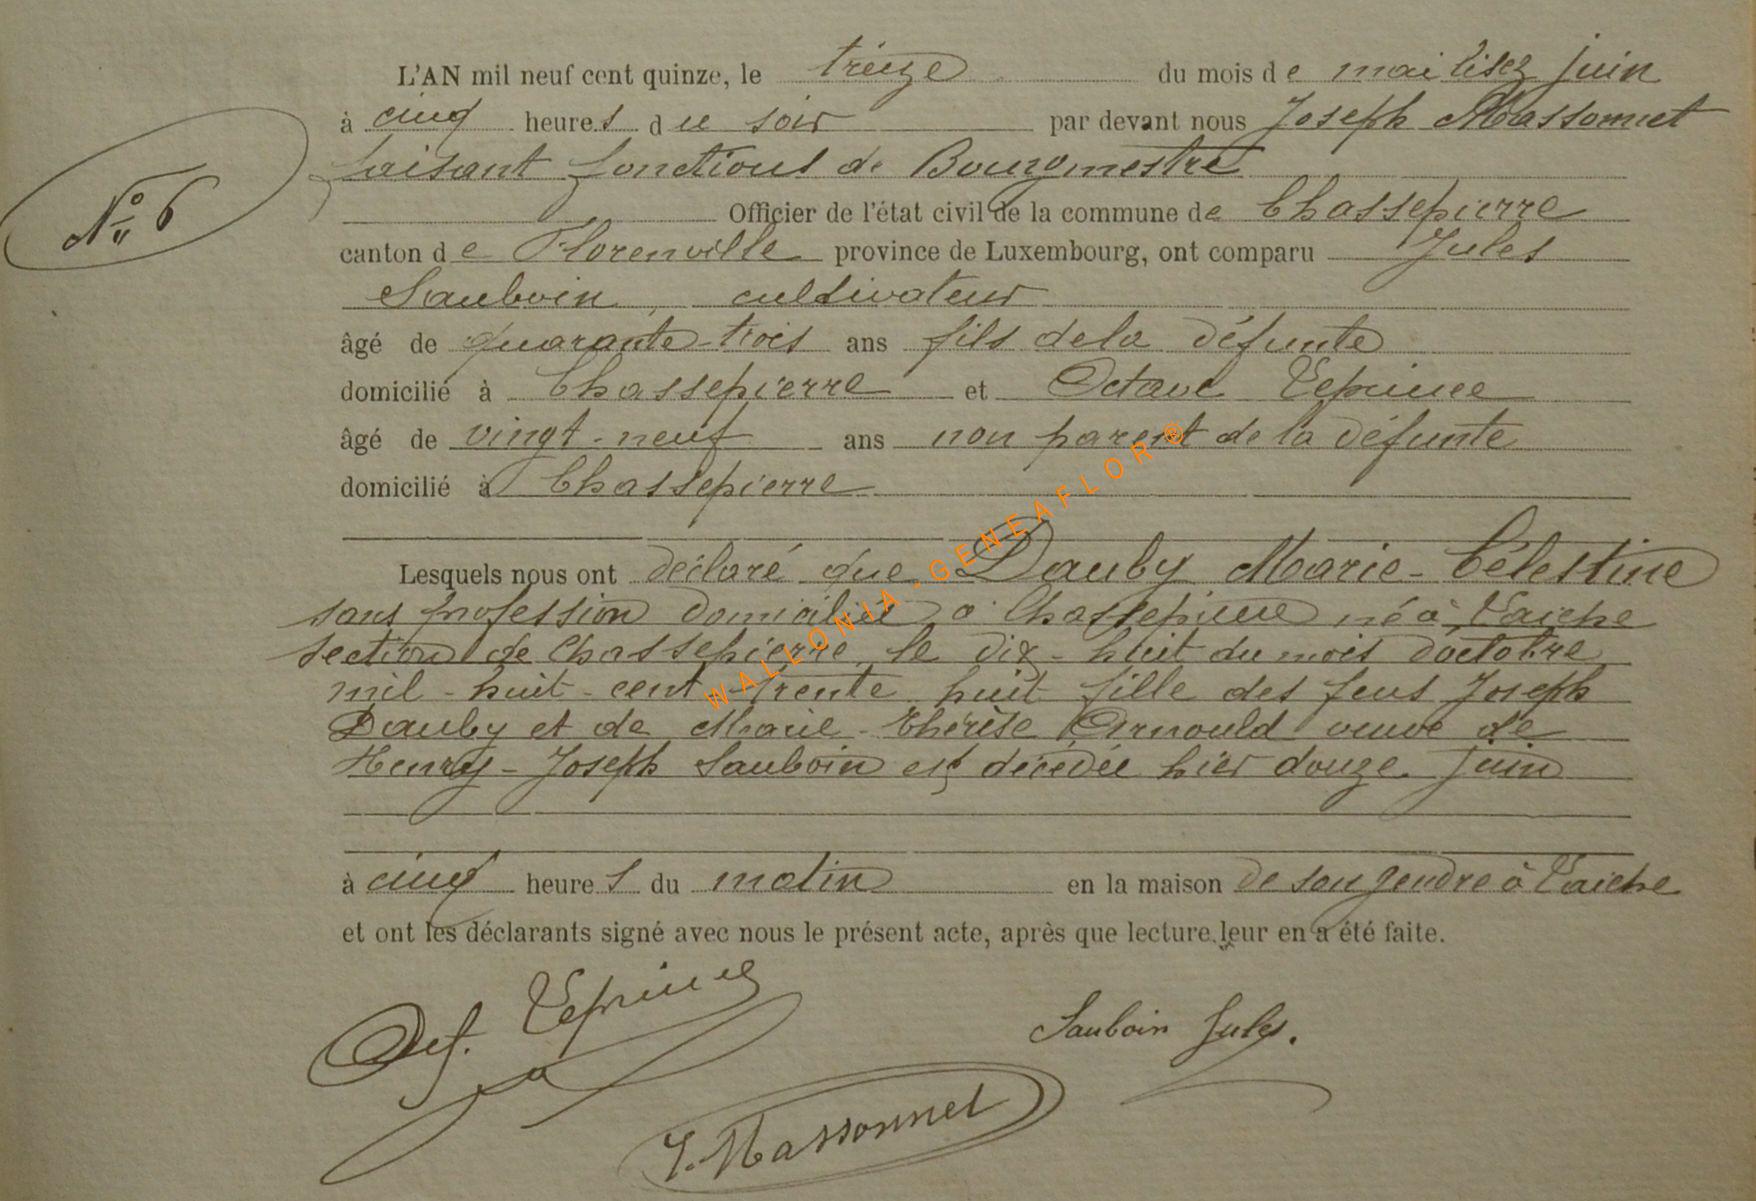 L'AN mil neuf cent quinze, le treize du mois de mai lisez juin
à cinq heures du soir par devant nous Joseph Massonnet
faisant fonctions de Bourgmestre
N° 6
Officier de l'état civil de la commune de Chassepierre
canton de Florenville province de Luxembourg, ont comparu Jules
Sauboin, cultivateur
âgé de quarante-trois ans fils de la défunte
domicilié à Chassepierre et Octave Leprince
âgé de vingt-neuf ans non parent de la défunte
domicilié à Chassepierre
Lesquels nous ont déclaré que Dauby Marie-Célestine
sans profession domiciliée à Chassepierre né à Laiche
section de Chassepierre, le dix-huit du mois d'octobre
mil-huit-cent-trente huit fille des feus Joseph
Dauby et de Marie-Thérèse Arnould veuve de
Henry-Joseph Sauboin est décédée hier douze juin
à cinq heures du matin en la maison de son gendre à Laiche
et ont les déclarants signé avec nous le présent acte, après que lecture leur en a été faite.
Oct. Leprince
Sauboin Jules.
J. Massonnet
WALLONIA-GENEAFLOR ®